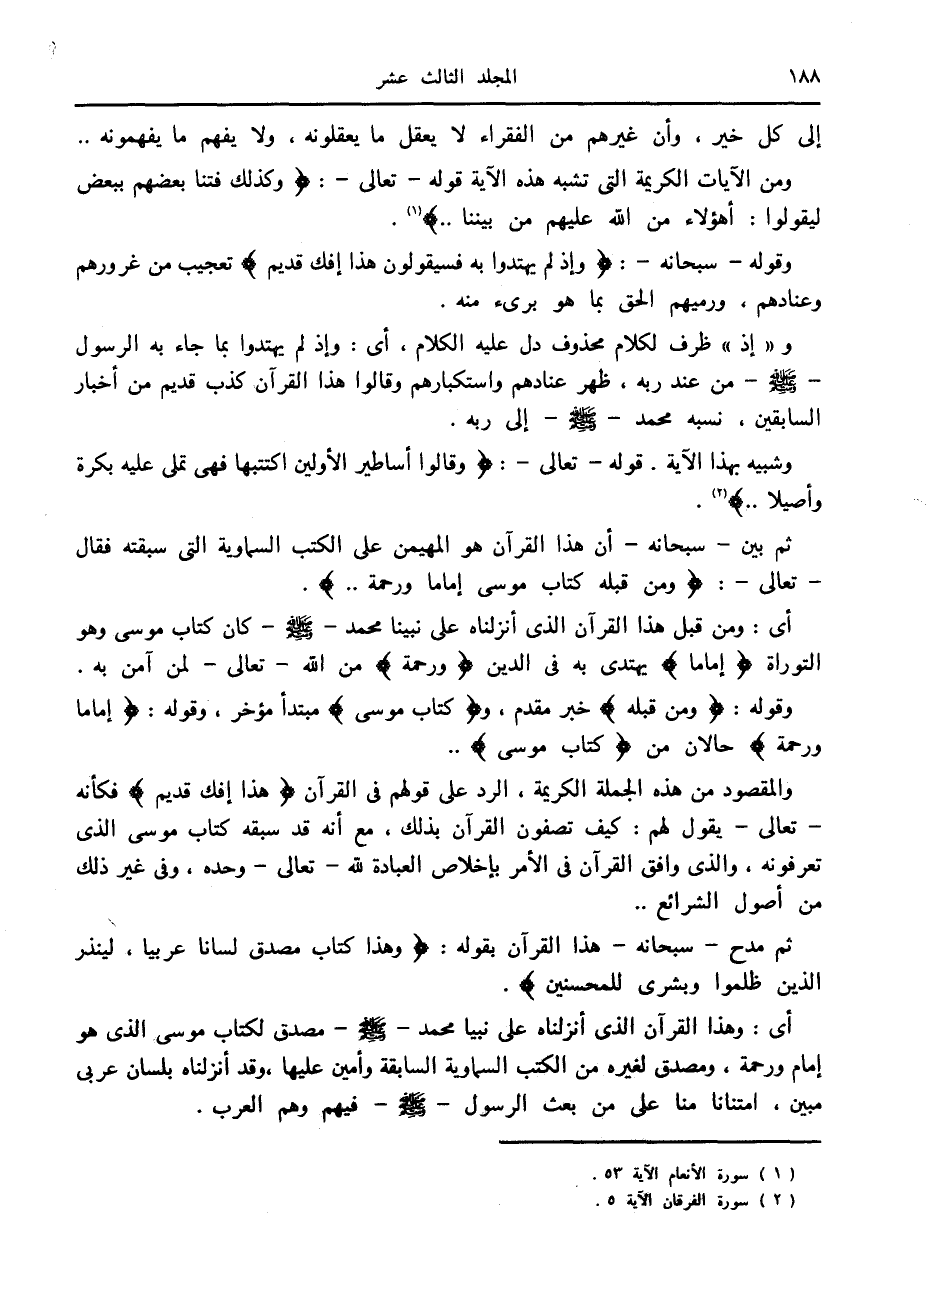 ١٨٨ المجلد الثالث عشر
إلى كل خير ، وأن غيرهم من الفقراء لا يعقل ما يعقلونه ، ولا يفهم ما يفهمونه ..
ومن الآيات الكريمة التى تشبه هذه الآية قوله - تعالى - : ﴿ وكذلك فتنا بعضهم ببعض
ليقولوا : أهؤلاء من الله عليهم من بيننا ..﴾(١) .
وقوله - سبحانه - : ﴿ وإذ لم يهتدوا به فسيقولون هذا إفك قديم ﴾ تعجيب من غرورهم
وعنادهم ، ورميهم الحق بما هو برىء منه .
و « إذ » ظرف لكلام محذوف دل عليه الكلام ، أى : وإذ لم يهتدوا بما جاء به الرسول
- ﷺ - من عند ربه ، ظهر عنادهم واستكبارهم وقالوا هذا القرآن كذب قديم من أخبار
السابقين ، نسبه محمد - ﷺ - إلى ربه .
وشبيه بهذا الآية . قوله - تعالى - : ﴿ وقالوا أساطير الأولين اكتتبها فهى تملى عليه بكرة
وأصيلا ..﴾(٢) .
ثم بين - سبحانه - أن هذا القرآن هو المهيمن على الكتب السماوية التى سبقته فقال
- تعالى - : ﴿ ومن قبله كتاب موسى إماما ورحمة .. ﴾ .
أى : ومن قبل هذا القرآن الذى أنزلناه على نبينا محمد - ﷺ - كان كتاب موسى وهو
التوراة ﴿ إماما ﴾ يهتدى به فى الدين ﴿ ورحمة ﴾ من الله - تعالى - لمن آمن به .
وقوله : ﴿ ومن قبله ﴾ خبر مقدم ، و﴿ كتاب موسى ﴾ مبتدأ مؤخر ، وقوله : ﴿ إماما
ورحمة ﴾ حالان من ﴿ كتاب موسى ﴾ ..
والمقصود من هذه الجملة الكريمة ، الرد على قولهم فى القرآن ﴿ هذا إفك قديم ﴾ فكأنه
- تعالى - يقول لهم : كيف تصفون القرآن بذلك ، مع أنه قد سبقه كتاب موسى الذى
تعرفونه ، والذى وافق القرآن فى الأمر بإخلاص العبادة لله - تعالى - وحده ، وفى غير ذلك
من أصول الشرائع ..
ثم مدح - سبحانه - هذا القرآن بقوله : ﴿ وهذا كتاب مصدق لسانا عربيا ، لينذر
الذين ظلموا وبشرى للمحسنين ﴾ .
أى : وهذا القرآن الذى أنزلناه على نبيا محمد - ﷺ - مصدق لكتاب موسى الذى هو
إمام ورحمة ، ومصدق لغيره من الكتب السماوية السابقة وأمين عليها ،وقد أنزلناه بلسان عربى
مبين ، امتنانا منا على من بعث الرسول - ﷺ - فيهم وهم العرب .
( ١ ) سورة الأنعام الآية ٥٣ .
( ٢ ) سورة الفرقان الآية ٥ .